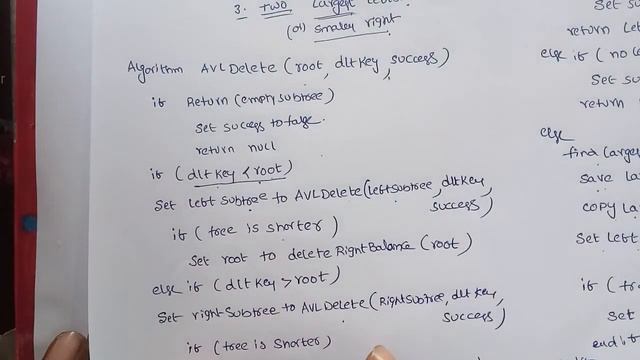 3. Two Largest
(or) smaller right
Algorithm AVLDelete (root, dltkey, success)
if Return (empty subtree)
Set success to false.
return null
if (dltkey < root)
Set left subtree to AVLDelete (leftsubtree, dltkey,
success)
if (tree is shorter)
Set root to delete RightBalance (root)
else if (dltkey > root)
Set right Subtree to AVLDelete (RightSubtree, dlt key,
success)
if (tree is shorter)
Set su
return le
else if (no le
Set su
return
else
find large
save la
copy la
Set left
if (tr
Set
end if